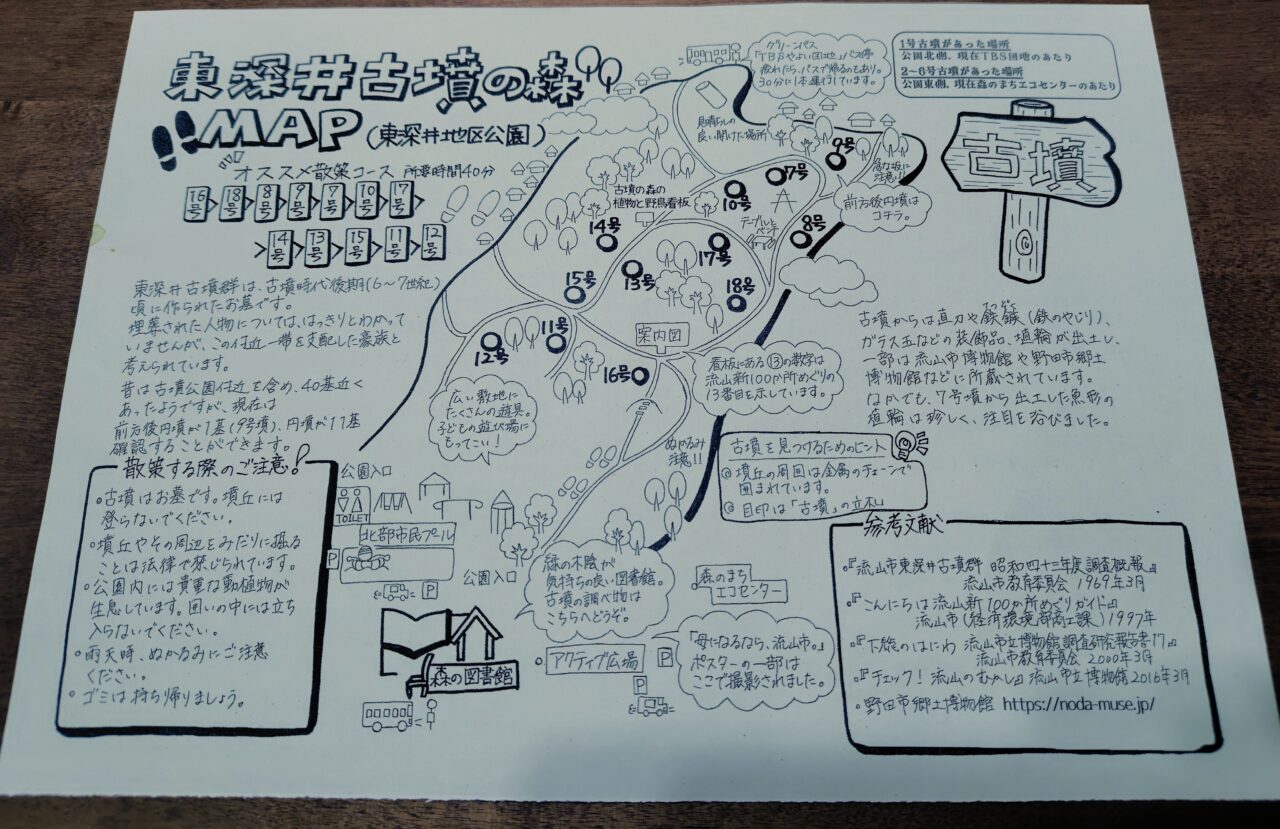 東深井古墳の森
MAP(東深井地区公園)
オススメ散策コース 所要時間40分
16号 18号 8号 9号 7号 10号 17号
14号 13号 15号 11号 12号
東深井古墳群は、古墳時代後期(6~7世紀)
頃に作られたお墓です。
埋葬された人物については、はっきりとわかって
いませんが、この付近一帯を支配した豪族と
考えられています。
昔は古墳公園付近を含め、40基近く
あったようですが、現在は
前方後円墳が1基(9号墳)、円墳が11基
確認することができます。
散策する際のご注意!
・古墳はお墓です。墳丘には
登らないでください。
・墳丘やその周辺をみだりに掘る
ことは法律で禁じられています。
・公園内には貴重な動植物が
生息しています。囲いの中には立ち
入らないでください。
・雨天時、ぬかるみにご注意
ください。
・ゴミは持ち帰りましょう。
グリーンバス
「TBSやよい団地」バス停
疲れたら、バスで帰るのもあり。
30分に1本運行しています。
1号古墳があった場所
公園北側、現在TBS団地のあたり
2~6号古墳があった場所
公園東側、現在森のまちエコセンターのあたり
古墳
見晴らしの
良い開けた場所
9号
急な坂に
注意!!
前方後円墳は
コチラ。
7号
10号
古墳の森の
植物と野鳥看板
テーブルと
ベンチ
8号
14号
17号
13号
18号
15号
11号
12号
案内図
16号
看板にある⑬の数字は
流山新100か所めぐりの
13番目を示しています。
広い敷地に
たくさんの遊具。
子どもの遊び場に
もってこい!
ぬかるみ
注意!!
古墳を見つけるためのヒント
墳丘の周囲は金属のチェーンで
囲まれています。
目印は「古墳」の立札
古墳からは直刀や鉄鏃(鉄のやじり)、
ガラス玉などの装飾品、埴輪が出土し、
一部は流山市博物館や野田市郷土
博物館などに所蔵されています。
なかでも、7号墳から出土した魚形の
埴輪は珍しく、注目を浴びました。
公園入口
TOILET
北部市民プール
P
P
公園入口
緑の木陰が
気持ちの良い図書館。
古墳の調べ物は
こちらへどうぞ。
森の図書館
森のまち
エコセンター
アクティブ広場
P
P
「母になるなら、流山市。」
ポスターの一部は
ここで撮影されました。
参考文献
・『流山市東深井古墳群 昭和四十三年度調査概報』
流山市教育委員会 1969年3月
・『こんにちは流山新100か所めぐりガイド』
流山市(経済環境部商工課)1997年
・『下総のはにわ 流山市立博物館調査研究報告書17』
流山市教育委員会 2000年3月
・『チェック!流山のむかし』流山市立博物館2016年3月
・野田市郷土博物館 https://noda-muse.jp/